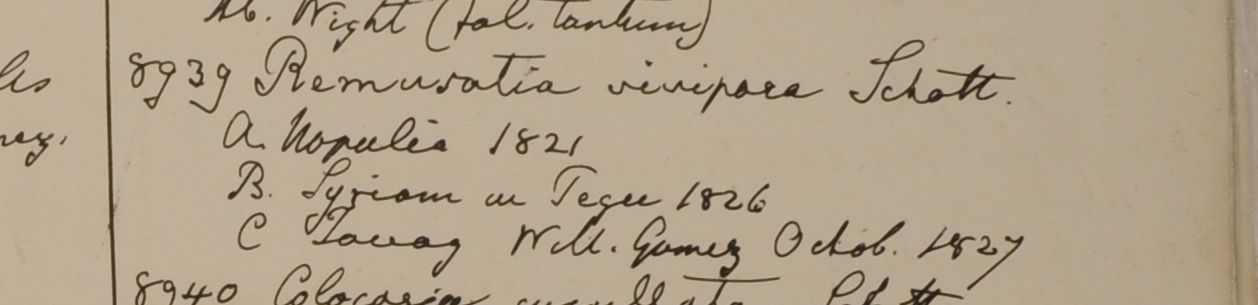 Hb. Wight (fol. tantum)
8939 Remusatia vivipara Schott.
A. Nopalia 1821
B. Syriam in Pegu 1826
C Tavoy W. Gomez Octob. 1827
8940 Colocasia Schott